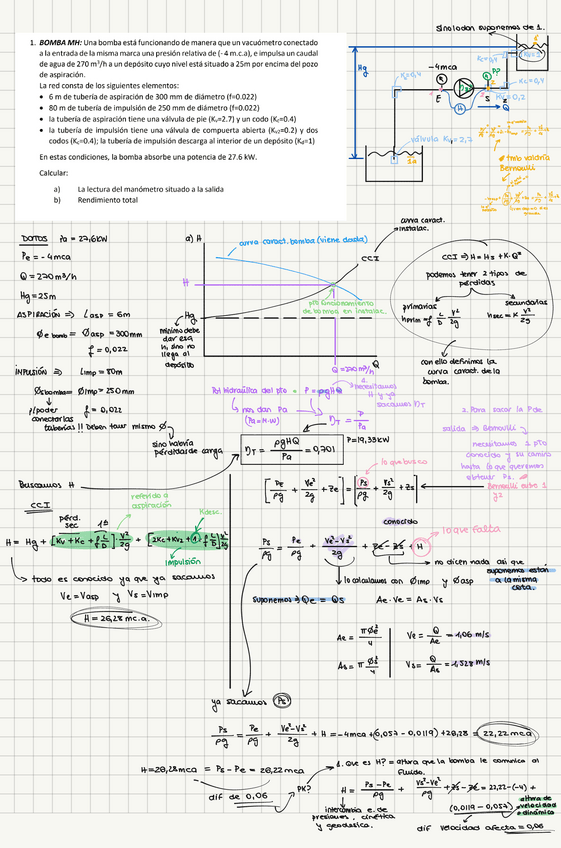 1. BOMBA MH: Una bomba está funcionando de manera que un vacuómetro conectado
a la entrada de la misma marca una presión relativa de (- 4 m.c.a), e impulsa un caudal
de agua de 270 m³/h a un depósito cuyo nivel está situado a 25m por encima del pozo
de aspiración.
La red consta de los siguientes elementos:
• 6 m de tubería de aspiración de 300 mm de diámetro (f=0.022)
• 80 m de tubería de impulsión de 250 mm de diámetro (f=0.022)
• la tubería de aspiración tiene una válvula de pie (Kv=2.7) y un codo (Kc=0.4)
• la tubería de impulsión tiene una válvula de compuerta abierta (Kv2=0.2) y dos
codos (Kc=0.4); la tubería de impulsión descarga al interior de un depósito (Kd=1)
En estas condiciones, la bomba absorbe una potencia de 27.6 kW.
Calcular:
a) La lectura del manómetro situado a la salida
b) Rendimiento total
Sino lo dan suponemos de 1.
Hg
-4mca
P?
Kc=0,4
E
S
válvula Kv = 2,7
tmb valdría
Bernoulli
DATOS Pa = 27,6kW
Pe = - 4mca
Q = 270 m³/h
Hg = 25m
ASPIRACIÓN ⇒ Lasp = 6m
Øe bomb = Øasp = 300mm
f = 0,022
IMPULSIÓN ⇒ Limp = 80m
Øs bomba = Øimp = 250mm
p/poder f = 0,022
conectarlas
tuberías!! Deben tener mismo Ø
sino habría
pérdidas de carga
a) H
curva caract. bomba (viene dada)
curva caract.
instalac.
CCI
H
Hg
pto funcionamiento
de bomba en instalac.
mínimo debe
dar esa
h, sino no
llega al
depósito
Q = 270 m³/h
Q
CCI ⇒ H = Hs + K·Q²
podemos tener 2 tipos de
pérdidas
primarias
secundarias
hprim = f L/D V²/2g
hsec = K V²/2g
con ello definimos la
curva caract de la
bomba.
Pot hidráulica del pto = P = ρgHQ
→ nos dan Pa
(Pa = H·W)
necesitamos
H y ya
sacamos ηT
ηT = P/Pa
ηT = ρgHQ/Pa = 0,701
P = 19,33kW
2. Para sacar la P de
salida ⇒ Bernoulli
necesitamos 1 pto
conocido y su camino
hasta lo que queremos
obtener Ps.
Bernoulli entre 1
y 2
Buscamos H
CCI
referido a
aspiración
lo que busco
[Pe/ρg + Ve²/2g + Ze] = [Ps/ρg + Vs²/2g + Zs]
pérd.
sec 1ª
Kdesc.
H = Hg + [Kv + Kc + f L/D] V²/2g + [2Kc + Kv2 + 1 + f L/D] V²/2g
Impulsión
→ todo es conocido ya que ya sacamos
Ve = Vasp y Vs = Vimp
H = 26,28 mc.a.
conocido
lo que falta
Ps/ρg = Pe/ρg + Ve²-Vs²/2g + Ze - Zs + H
→ no dicen nada así que
suponemos están
a la misma
cota.
lo calculamos con Øimp y Øasp
Suponemos ⇒ Qe = Qs Ae·Ve = As·Vs
Ae = π Øe²/4 Ve = Q/Ae = 1,06 m/s
As = π Øs²/4 Vs = Q/As = 1,528 m/s
ya sacamos Ps
Ps/ρg = Pe/ρg + Ve²-Vs²/2g + H = -4mca + (0,057 - 0,0119) + 26,28 = 22,22 mca
H = 26,28 mca = Ps - Pe = 26,22 mca
dif de 0,06
PK?
1. Que es H? = altura que la bomba le comunica al
fluido.
H = Ps - Pe/ρg + Vs²-Ve²/2g + Zs - Ze = 22,22 - (-4) +
(0,0119 - 0,057)
altura de
velocidad
o dinámica
intercambia e. de
presiones, cinética
y geodésica.
dif velocidad afecta = 0,06